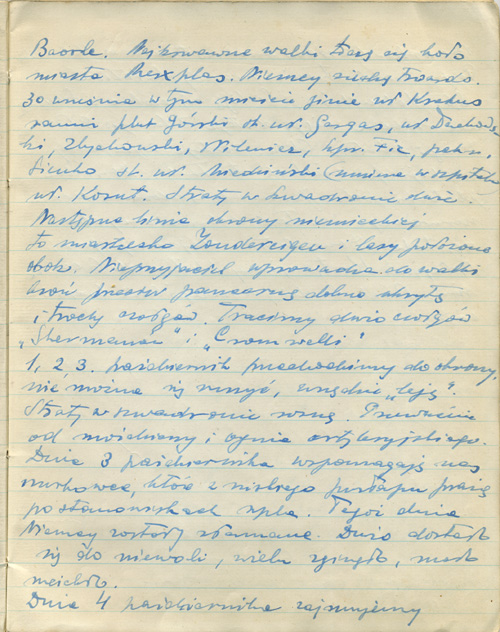 Baarle. Najkrwawsze walki toczą się koło
miasta Merxplas. Niemcy siedzą twardo.
30 września w tym mieście ginie uł. Krakus
ranni plut. Górski st. uł. Gargas, uł.
ki, Zbychowski, Wilewicz, kpr. Fic, pchr.
st. uł. Miedziński (umiera w szpitalu
uł. Kosut. Straty w szwadronie duże.
Następna linia obrony niemieckiej
to miasteczko Zondereigen i lasy położone
obok. Nieprzyjaciel wprowadza do walki
broń przeciw pancerną dobrze ukrytą
i trochę czołgów. Tracimy dużo czołgów
„Shermanów" i „Cromwelli"
1, 2, 3. październik przechodzimy do obrony,
nie można się ruszyć, wszędzie „leją".
Straty w szwadronie rosną. Przeważnie
od moździerzy i ognia artyleryjskiego.
Dnia 3 października wspomagają nas
nurkowce, które z niskiego pułapu prażą
po stanowiskach npla. Tegoż dnia
Niemcy zostały złamane. Dużo dostało
się do niewoli, wielu zginęło, mało
uciekło.
Dnia 4 października zajmujemy